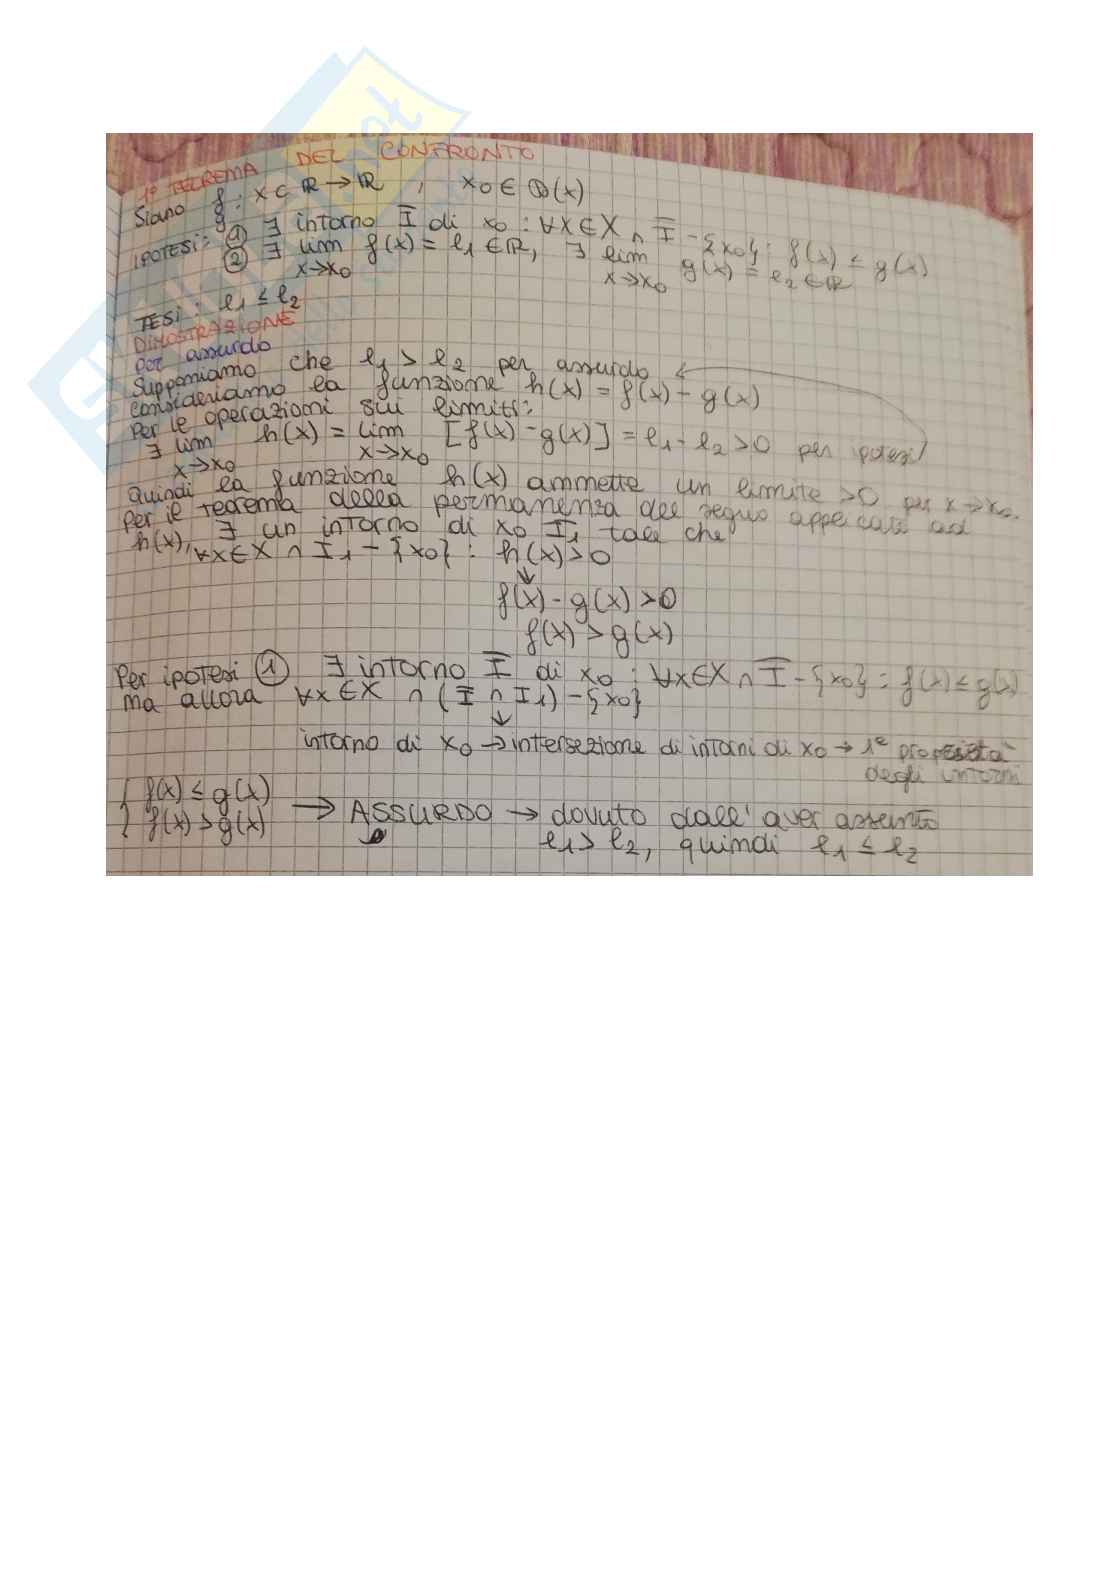 1° TEOREMA DEL CONFRONTO
Siano f, g : X ⊂ ℝ → ℝ , x₀ ∈ D(x)
IPOTESI: ① ∃ intorno Ī di x₀ : ∀x∈X ∩ Ī - {x₀} : f(x) ≤ g(x)
② ∃ lim x→x₀ f(x) = l₁ ∈ ℝ, ∃ lim x→x₀ g(x) = l₂ ∈ ℝ
TESI: l₁ ≤ l₂
DIMOSTRAZIONE
per assurdo
Supponiamo che l₁ > l₂ per assurdo
consideriamo la funzione h(x) = f(x) - g(x)
Per le operazioni sui limiti:
∃ lim x→x₀ h(x) = lim x→x₀ [f(x) - g(x)] = l₁ - l₂ > 0 per ipotesi
Quindi la funzione h(x) ammette un limite >0 per x→x₀.
Per il teorema della permanenza del segno applicato ad
h(x), ∃ un intorno di x₀ I₁ tale che
∀x∈X ∩ I₁ - {x₀} : h(x) > 0
↓
f(x) - g(x) > 0
f(x) > g(x)
Per ipotesi ① ∃ intorno Ī di x₀ : ∀x∈X ∩ Ī - {x₀} : f(x) ≤ g(x)
ma allora ∀x ∈ X ∩ (Ī ∩ I₁) - {x₀}
↓
intorno di x₀ → intersezione di intorni di x₀ → 1ª proprietà
degli intorni
{ f(x) ≤ g(x)
{ f(x) > g(x) → ASSURDO → dovuto dall'aver assunto
l₁ > l₂, quindi l₁ ≤ l₂